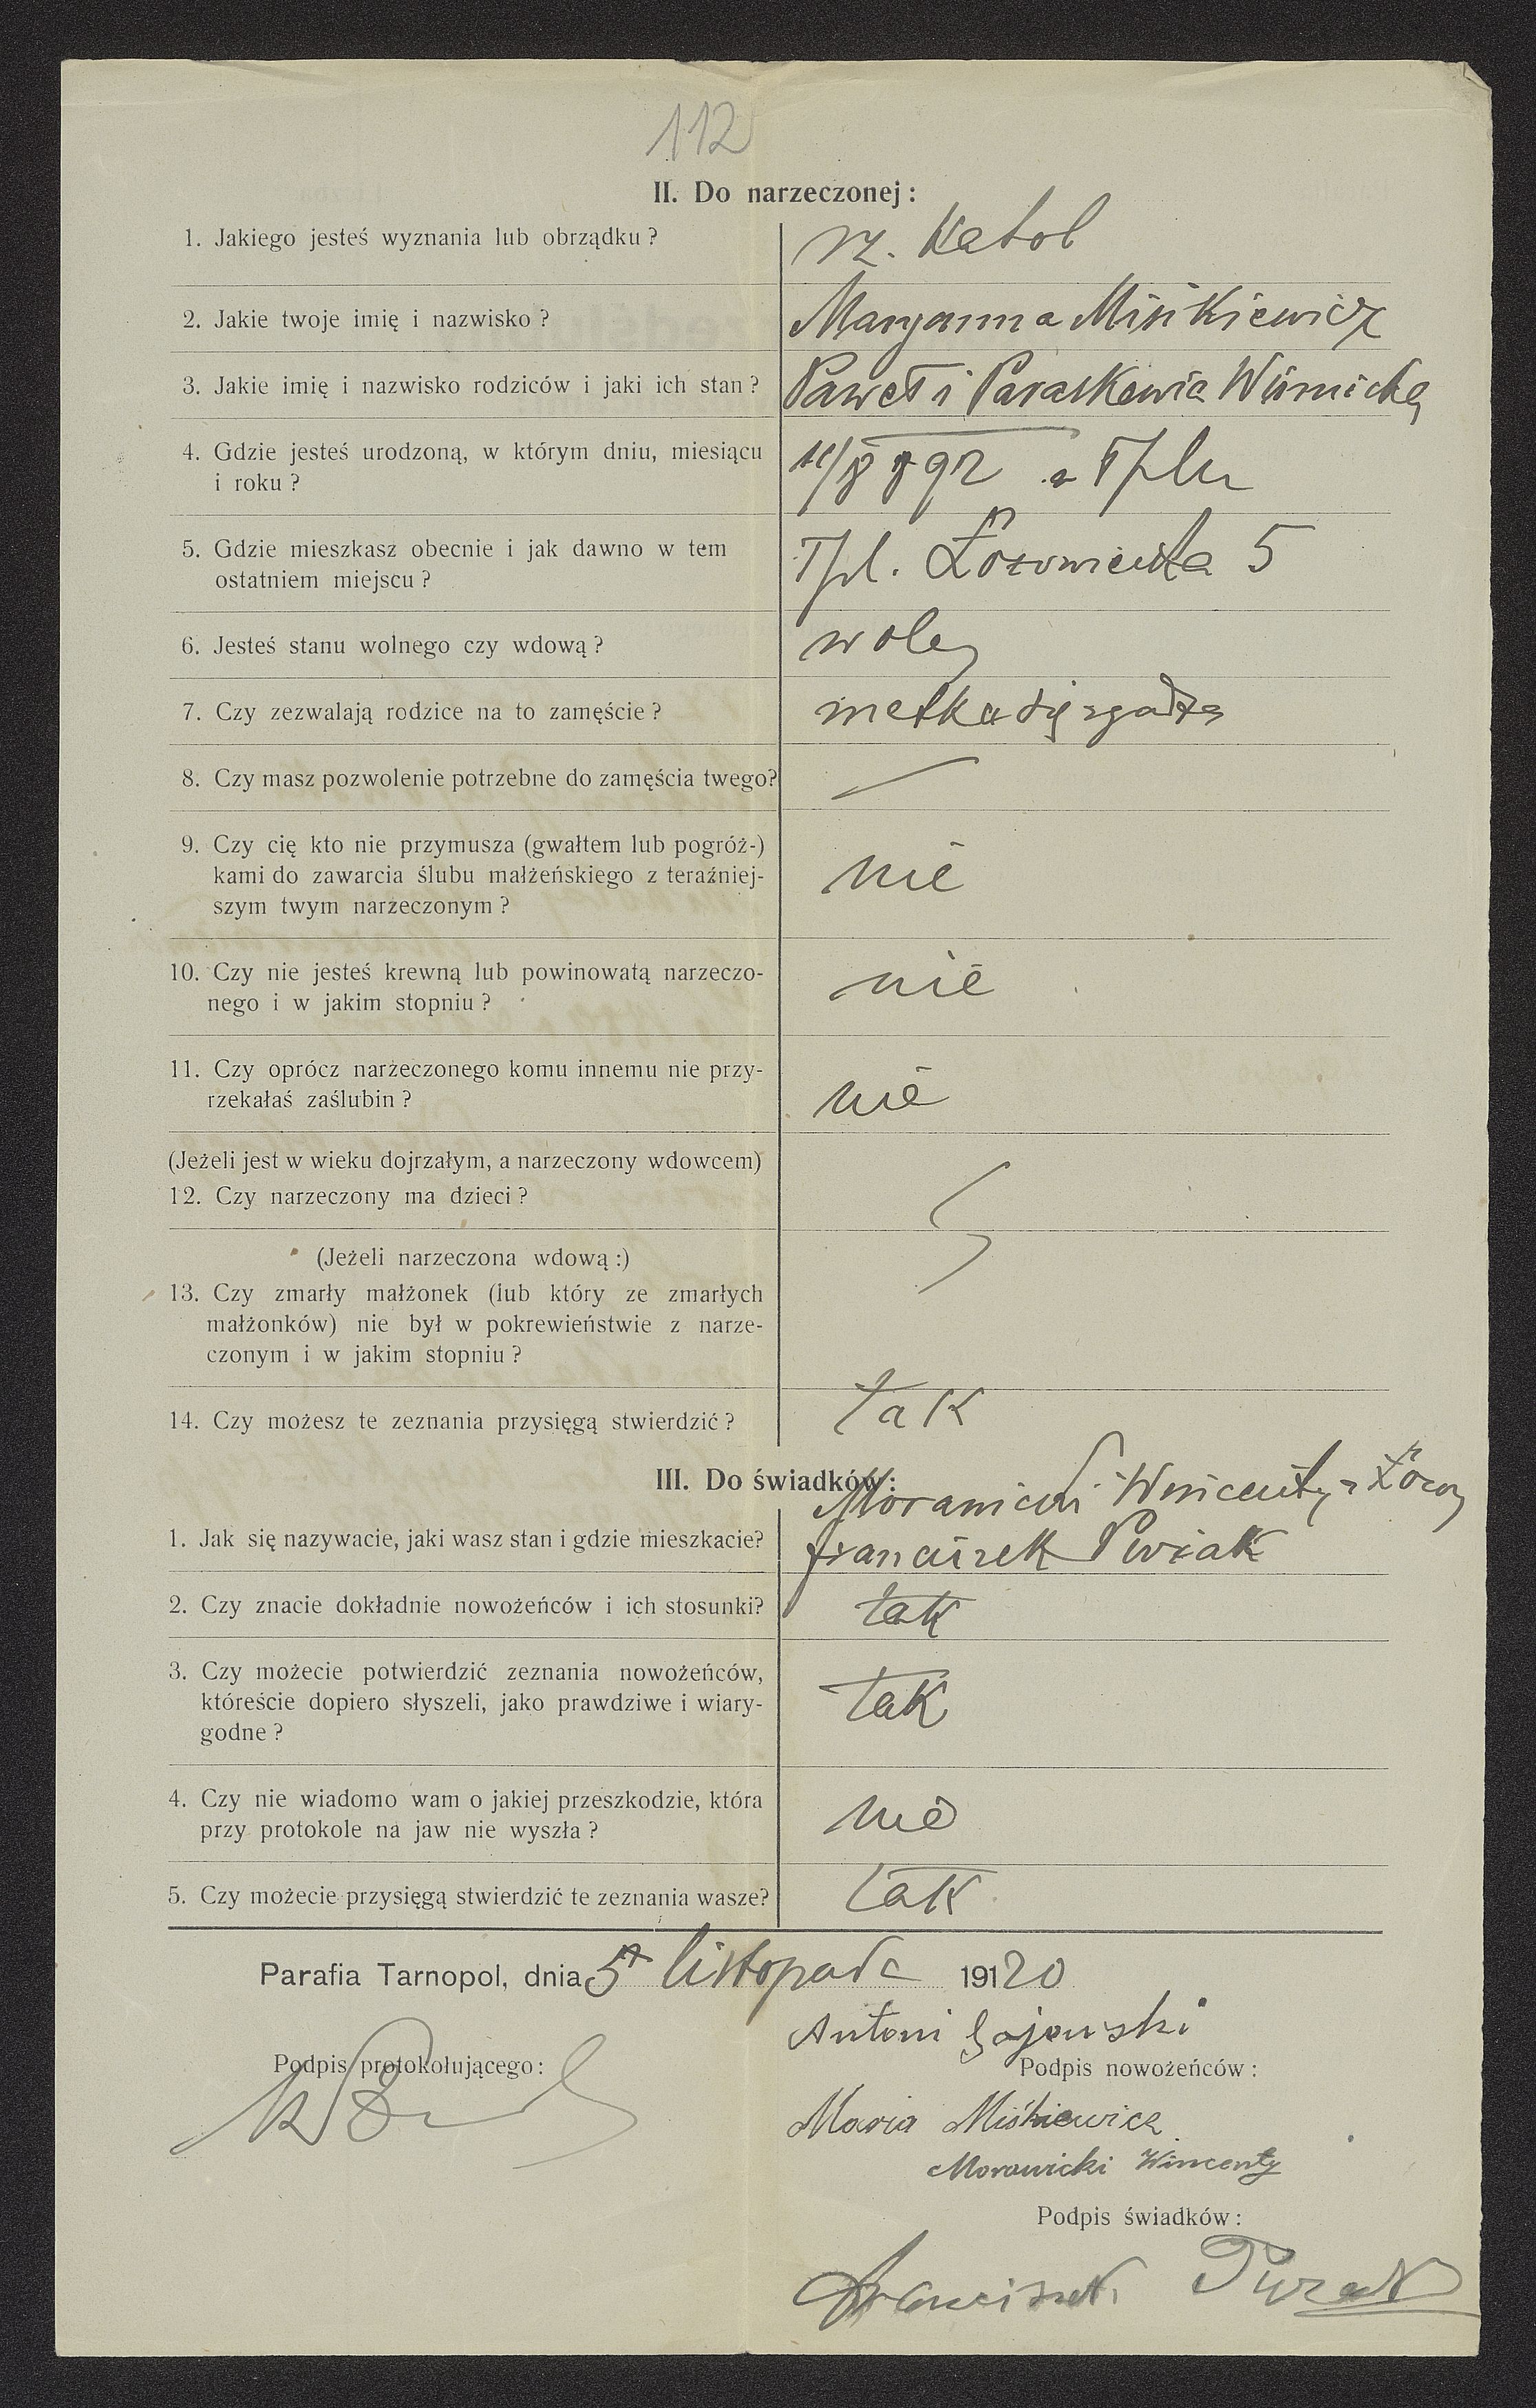 112
II. Do narzeczonej:
1. Jakiego jesteś wyznania lub obrządku?
rz. Katol
2. Jakie twoje imię i nazwisko?
Maryanna Misikiewicz
3. Jakie imię i nazwisko rodziców i jaki ich stan?
Paweł i Paraskewia
4. Gdzie jesteś urodzoną, w którym dniu, miesiącu
i roku?
892
5. Gdzie mieszkasz obecnie i jak dawno w tem
ostatniem miejscu?
Tpl. 5
6. Jesteś stanu wolnego czy wdową?
wolny
7. Czy zezwalają rodzice na to zamęście?
matka się zgadza
8. Czy masz pozwolenie potrzebne do zamęścia twego?
9. Czy cię kto nie przymusza (gwałtem lub pogróż-)
kami do zawarcia ślubu małżeńskiego z teraźniej-
szym twym narzeczonym?
nie
10. Czy nie jesteś krewną lub powinowatą narzeczo-
nego i w jakim stopniu?
nie
11. Czy oprócz narzeczonego komu innemu nie przy-
rzekałaś zaślubin?
nie
(Jeżeli jest w wieku dojrzałym, a narzeczony wdowcem)
12. Czy narzeczony ma dzieci?
(Jeżeli narzeczona wdową:)
13. Czy zmarły małżonek (lub który ze zmarłych
małżonków) nie był w pokrewieństwie z narze-
czonym i w jakim stopniu?
14. Czy możesz te zeznania przysięgą stwierdzić?
tak
III. Do świadków:
Morawicki Wincenty z
1. Jak się nazywacie, jaki wasz stan i gdzie mieszkacie?
franciszek
2. Czy znacie dokładnie nowożeńców i ich stosunki?
tak
3. Czy możecie potwierdzić zeznania nowożeńców,
któreście dopiero słyszeli, jako prawdziwe i wiary-
godne?
tak
4. Czy nie wiadomo wam o jakiej przeszkodzie, która
przy protokole na jaw nie wyszła?
nie
5. Czy możecie przysięgą stwierdzić te zeznania wasze?
tak
Parafia Tarnopol, dnia 5 listopada 19120
Antoni Gajewski
Podpis protokołującego:
Podpis nowożeńców:
Maria Miśkiewicz
Morawicki Wincenty
Podpis świadków:
Franciszek